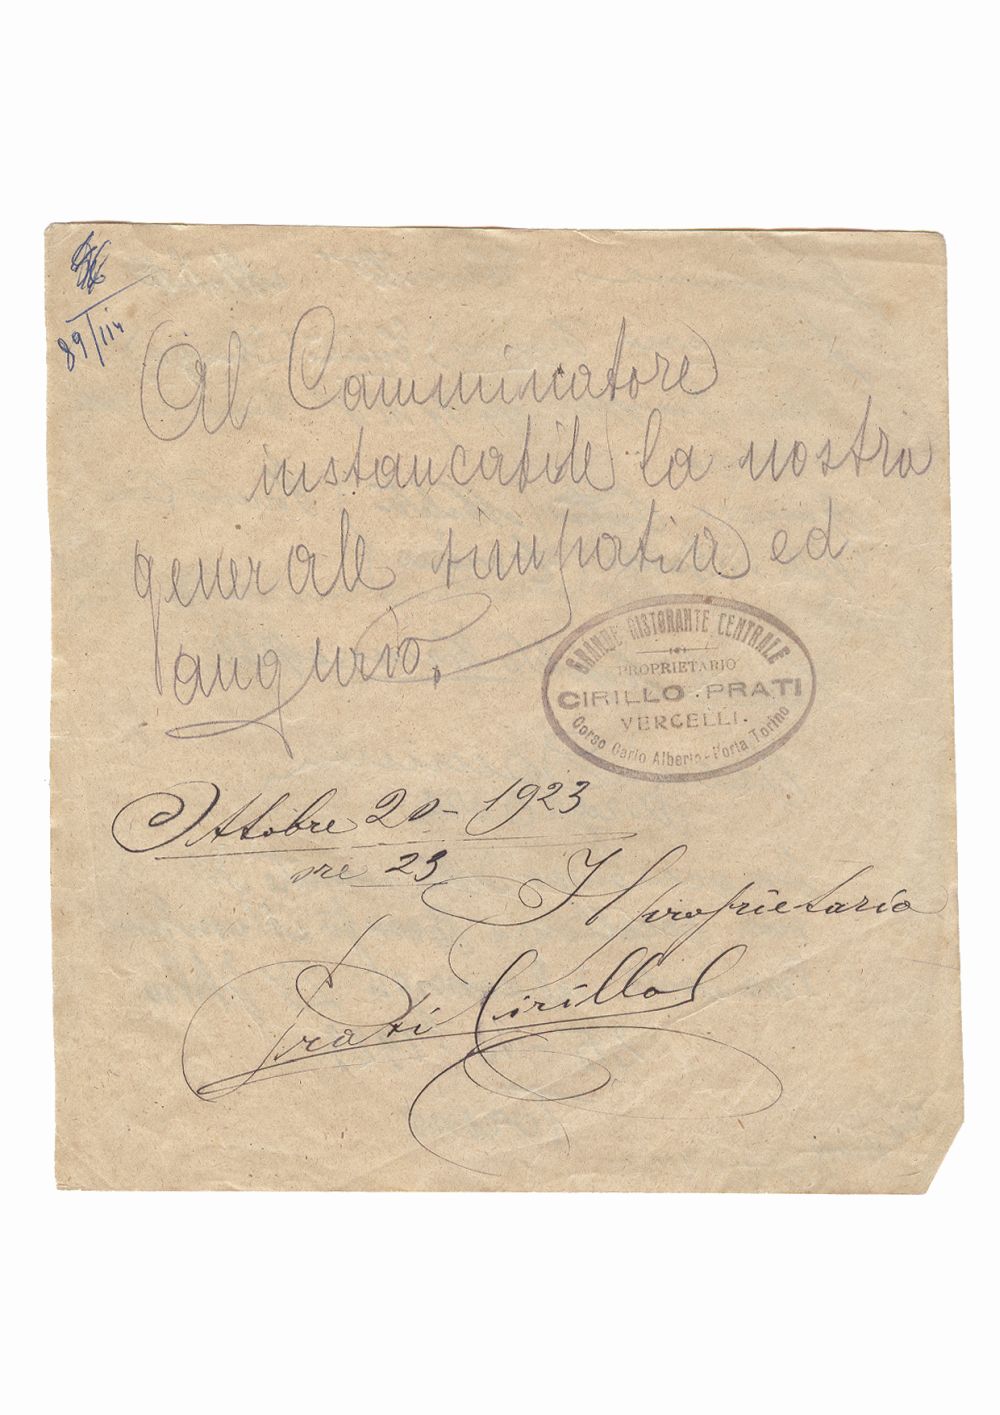 89/114
Al Camminatore
instancabile la nostra
generale simpatia ed
augurio.
GRANDE RISTORANTE CENTRALE
PROPRIETARIO
CIRILLO PRATI
VERCELLI.
Corso Carlo Alberto - Porta Torino
Ottobre 20 - 1923
ore 23
Il proprietario
Prati Cirillo